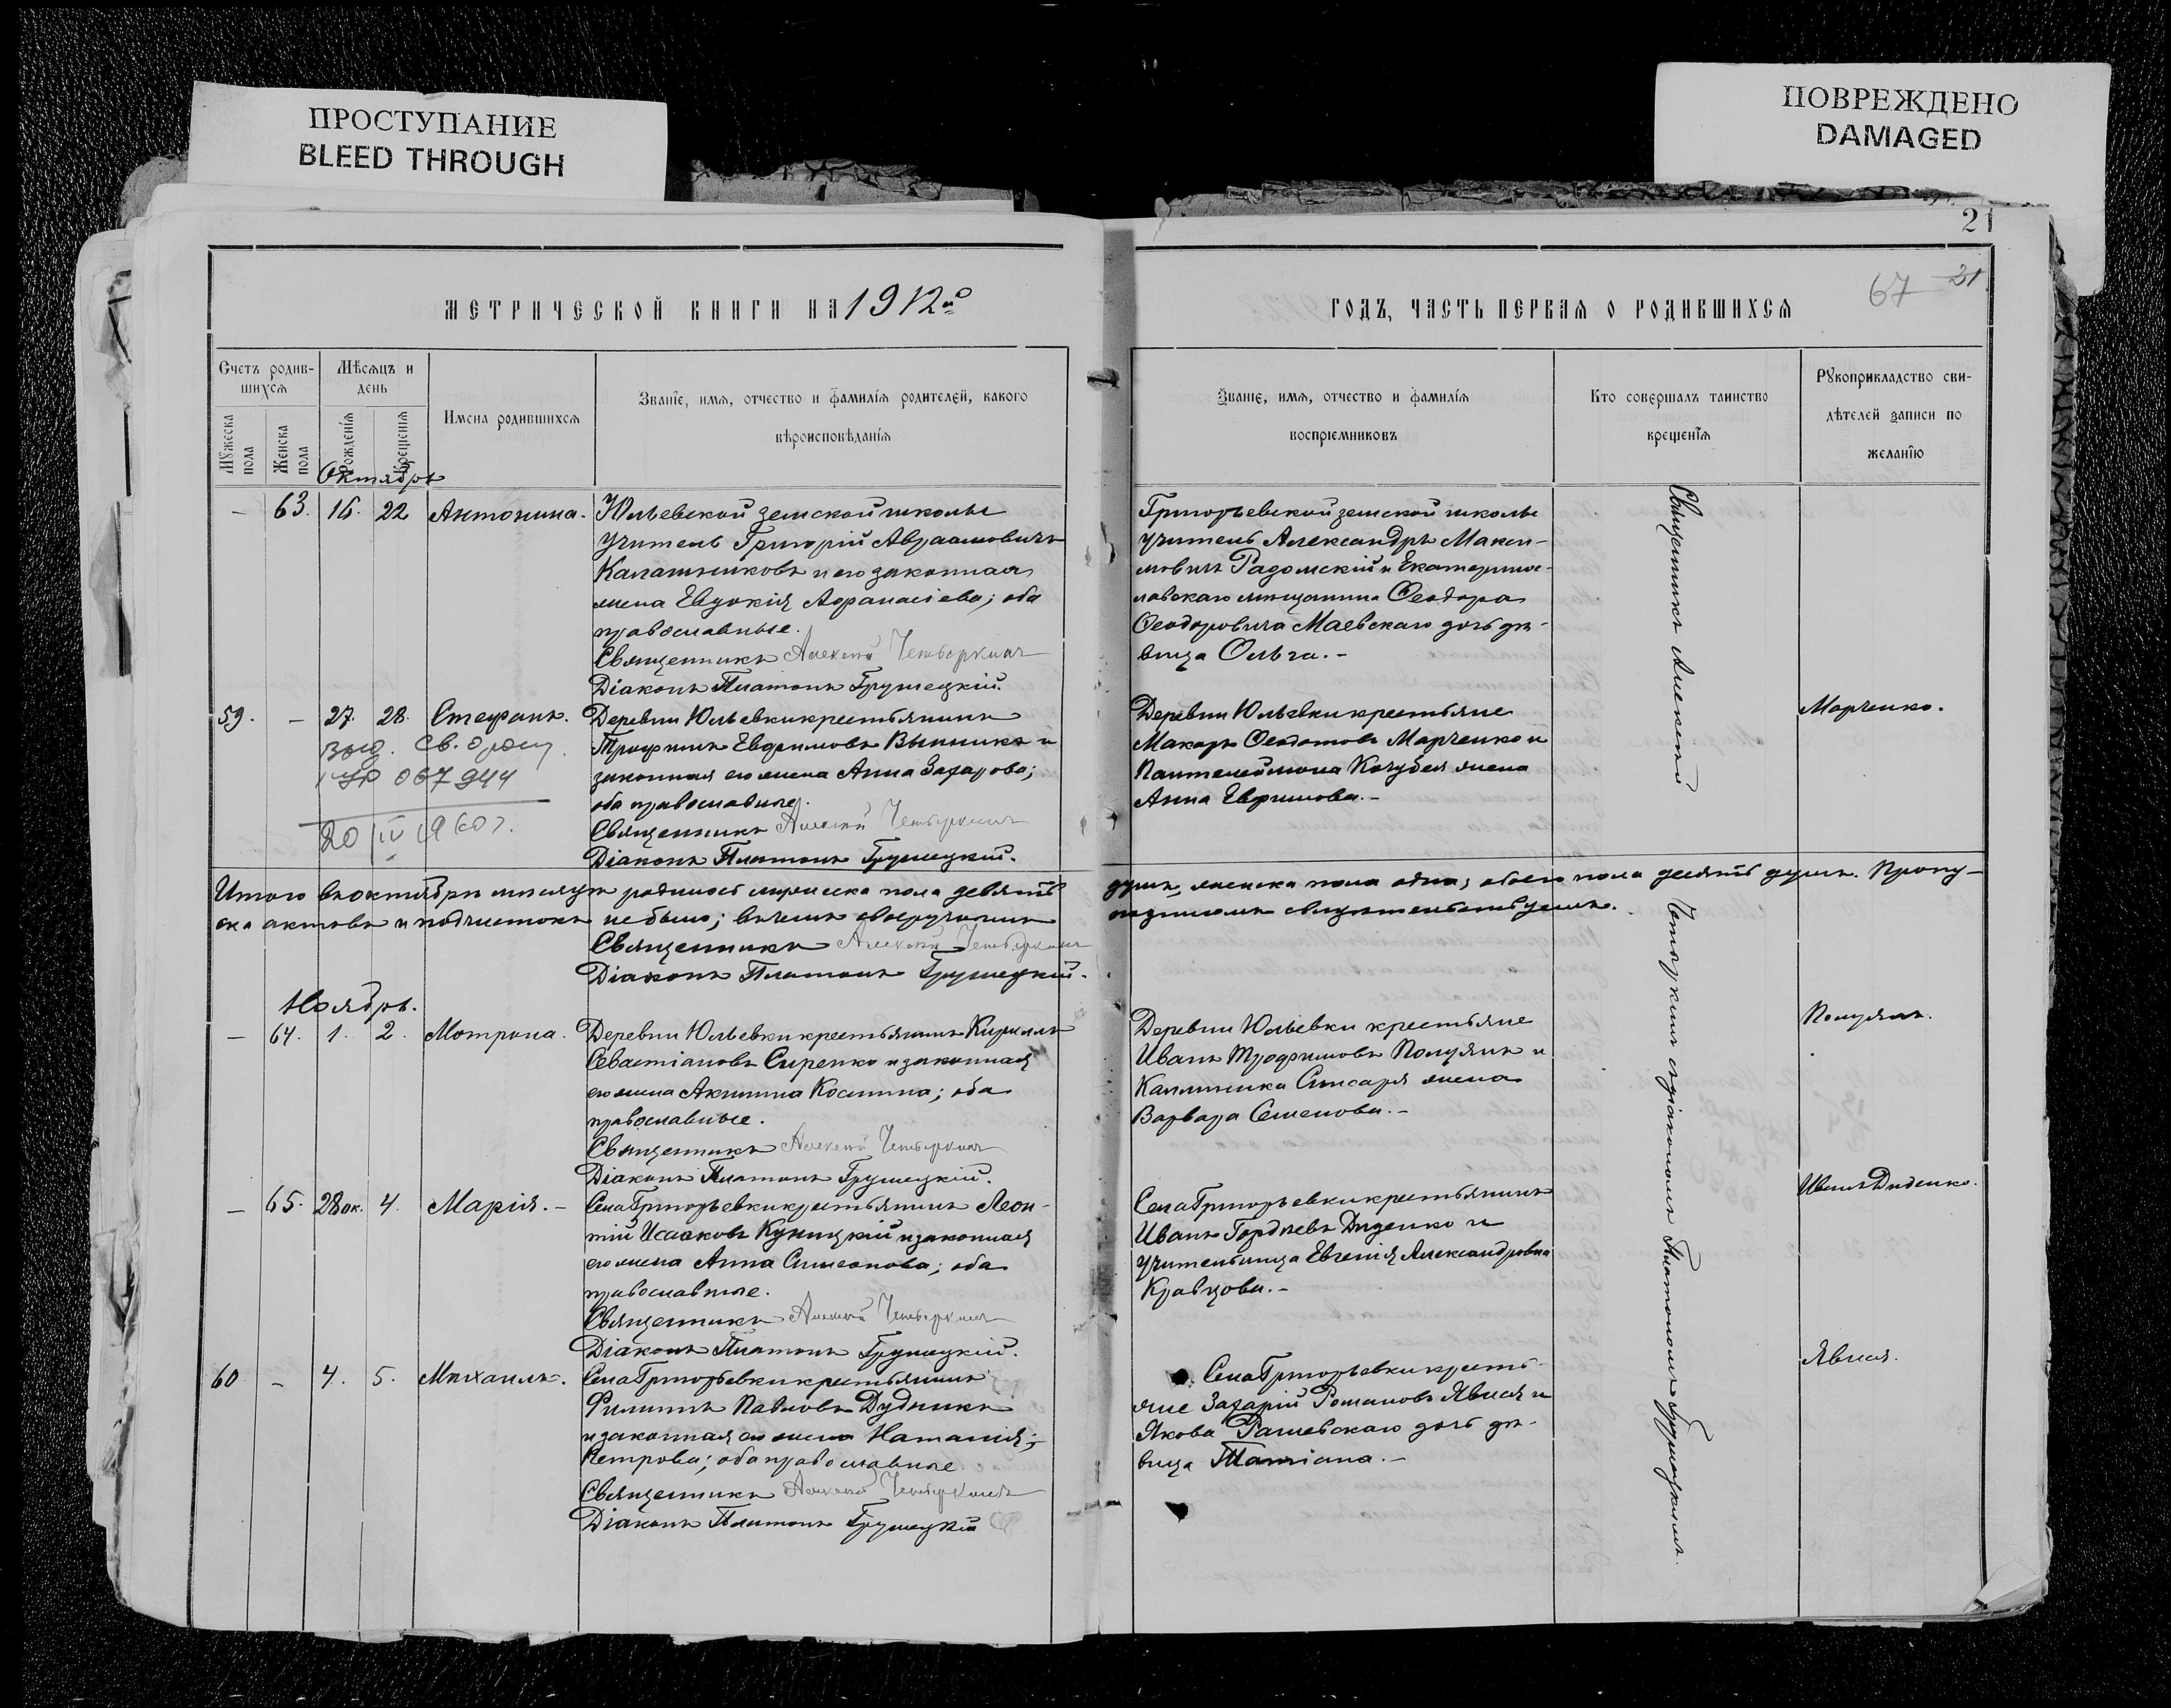 ПРОСТУПАНИЕ
BLEED THROUGH
ПОВРЕЖДЕНО
DAMAGED
21
67 21
МЕТРИЧЕСКОЙ КНИГИ НА 1912й
ГОДЪ, ЧАСТЬ ПЕРВАЯ О РОДИВШИХСЯ
Счетъ родив-
шихся
Мѣсяцъ и
день
Мужеска
пола
Женска
пола
рожденія
крещенія
Имена родившихся
Званіе, имя, отчество и фамилія родителей, какого
вѣроисповѣданія
Званіе, имя, отчество и фамилія
воспріемниковъ
Кто совершалъ таинство
крещенія
Рукоприкладство сви-
дѣтелей записи по
желанію
Октябрь
— 63. 16. 22 Антонина.
Юльевской земской школы
учитель Григорій Авраамовичъ
Калашниковъ и его законная
жена Евдокія Афанасіева; оба
православные.
Священникъ Алексій Четверкинъ
Діаконъ Платонъ Грушецкій.
Григорьевской земской школы
учитель Александръ Макси-
мовичъ Радомскій и Екатеринос-
лавскаго мѣщанина Ѳеодора
Ѳеодоровича Маевскаго дочь дѣ-
вица Ольга.-
59. — 27. 28. Стефанъ.
Выд. св. о рожд.
067944
20 IV 1960 г.
Деревни Юльевки крестьянинъ
Трофимъ Евфимовъ и
законная его жена Анна Захарова;
оба православные.
Священникъ Алексій Четверкинъ
Діаконъ Платонъ Грушецкій.
Деревни Юльевки крестьяне
Макаръ Ѳедотовъ Марченко и
Пантелеймона Кочубея жена
Анна Евфимова.-
Марченко.
Итого въ октябрѣ мѣсяцѣ родилось мужеска пола девять
душъ, женска пола одна; обоего пола десять душъ. Пропу-
ска актовъ и подчистокъ не было; въ чемъ своеручнымъ
подписомъ свидѣтельствуемъ.
Священникъ Алексій Четверкинъ
Діаконъ Платонъ Грушецкій.
Ноябрь.
— 64. 1. 2. Мотрона.
Деревни Юльевки крестьянинъ Кириллъ
Севастіановъ Сиренко и законная
его жена Акилина Космина; оба
православные.
Священникъ Алексій Четверкинъ
Діаконъ Платонъ Грушецкій.
Деревни Юльевки крестьяне
Иванъ Трофимовъ Полуянъ и
Каллиника жена
Варвара Семенова.-
Полуянъ.
— 65. 28 ок. 4. Марія.-
Села Григорьевки крестьянинъ Леон-
тій Исааковъ Куницкій и законная
его жена Анна Симеонова; оба
православные.
Священникъ Алексій Четверкинъ
Діаконъ Платонъ Грушецкій.
Села Григорьевки крестьянинъ
Иванъ Гордѣевъ Диденко и
учительница Евгенія Александровна
Кравцова.-
Иванъ Диденко.
60 - 4. 5. Михаилъ.
Села Григорьевки крестьянинъ
Филиппъ Павловъ Дудникъ
и законная его жена Наталія
Петрова; оба православные.
Священникъ Алексій Четверкинъ
Діаконъ Платонъ Грушецкій
Села Григорьевки кресть-
яне Захарій Романовъ и
Якова Рашевскаго дочь дѣ-
вица Татіана.-
Священникъ Алексій Четверкинъ съ діакономъ Платономъ Грушецкимъ.